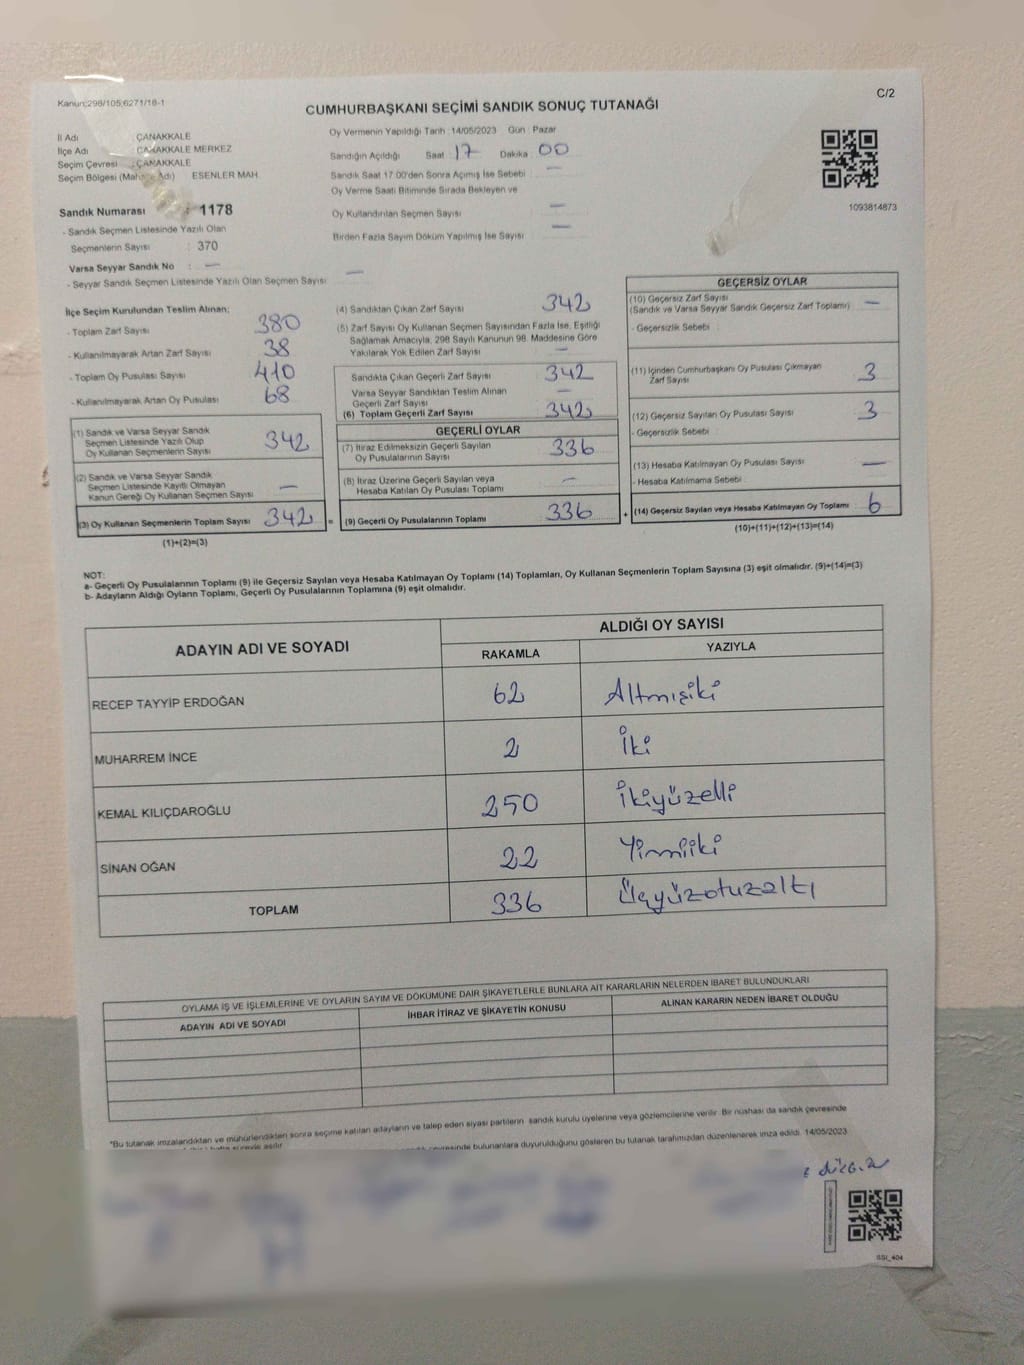 Kanun;298/105;6271/18-1
C/2
CUMHURBAŞKANI SEÇİMİ SANDIK SONUÇ TUTANAĞI
İl Adı : ÇANAKKALE
İlçe Adı : ÇANAKKALE MERKEZ
Seçim Çevresi : ÇANAKKALE
Seçim Bölgesi (Mahalle Adı) ESENLER MAH.
Sandık Numarası : 1178
- Sandık Seçmen Listesinde Yazılı Olan
Seçmenlerin Sayısı : 370
Varsa Seyyar Sandık No : —
- Seyyar Sandık Seçmen Listesinde Yazılı Olan Seçmen Sayısı : —
Oy Vermenin Yapıldığı Tarih : 14/05/2023 Gün : Pazar
Sandığın Açıldığı Saat : 17 Dakika : 00
Sandık Saat 17.00'den Sonra Açımış İse Sebebi : —
Oy Verme Saati Bitiminde Sırada Bekleyen ve
Oy Kullandırılan Seçmen Sayısı : —
Birden Fazla Sayım Döküm Yapılmış İse Sayısı : —
1093814873
İlçe Seçim Kurulundan Teslim Alınan;
- Toplam Zarf Sayısı : 380
- Kullanılmayarak Artan Zarf Sayısı : 38
- Toplam Oy Pusulası Sayısı : 410
- Kullanılmayarak Artan Oy Pusulası : 68
(1) Sandık ve Varsa Seyyar Sandık
Seçmen Listesinde Yazılı Olup
Oy Kullanan Seçmenlerin Sayısı : 342
(2) Sandık ve Varsa Seyyar Sandık
Seçmen Listesinde Kayıtlı Olmayan
Kanun Gereği Oy Kullanan Seçmen Sayısı : —
(3) Oy Kullanan Seçmenlerin Toplam Sayısı : 342 =
(1)+(2)=(3)
(4) Sandıktan Çıkan Zarf Sayısı : 342
(5) Zarf Sayısı Oy Kullanan Seçmen Sayısından Fazla İse, Eşitliği
Sağlamak Amacıyla, 298 Sayılı Kanunun 98. Maddesine Göre
Yakılarak Yok Edilen Zarf Sayısı : —
Sandıkta Çıkan Geçerli Zarf Sayısı : 342
Varsa Seyyar Sandıktan Teslim Alınan
Geçerli Zarf Sayısı : —
(6) Toplam Geçerli Zarf Sayısı : 342
GEÇERLİ OYLAR
(7) İtiraz Edilmeksizin Geçerli Sayılan
Oy Pusulalarının Sayısı : 336
(8) İtiraz Üzerine Geçerli Sayılan veya
Hesaba Katılan Oy Pusulası Toplamı : —
(9) Geçerli Oy Pusulalarının Toplamı : 336 +
GEÇERSİZ OYLAR
(10) Geçersiz Zarf Sayısı
(Sandık ve Varsa Seyyar Sandık Geçersiz Zarf Toplamı) : —
- Geçersizlik Sebebi :
(11) İçinden Cumhurbaşkanı Oy Pusulası Çıkmayan
Zarf Sayısı : 3
(12) Geçersiz Sayılan Oy Pusulası Sayısı : 3
- Geçersizlik Sebebi :
(13) Hesaba Katılmayan Oy Pusulası Sayısı : —
- Hesaba Katılmama Sebebi :
(14) Geçersiz Sayılan veya Hesaba Katılmayan Oy Toplamı : 6
(10)+(11)+(12)+(13)=(14)
NOT:
a- Geçerli Oy Pusulalarının Toplamı (9) ile Geçersiz Sayılan veya Hesaba Katılmayan Oy Toplamı (14) Toplamları, Oy Kullanan Seçmenlerin Toplam Sayısına (3) eşit olmalıdır. (9)+(14)=(3)
b- Adayların Aldığı Oyların Toplamı, Geçerli Oy Pusulalarının Toplamına (9) eşit olmalıdır.
ADAYIN ADI VE SOYADI
ALDIĞI OY SAYISI
RAKAMLA YAZIYLA
RECEP TAYYİP ERDOĞAN 62 Altmışiki
MUHARREM İNCE 2 İki
KEMAL KILIÇDAROĞLU 250 İkiyüzelli
SİNAN OĞAN 22 Yirmiiki
TOPLAM 336 Üçyüzotuzaltı
OYLAMA İŞ VE İŞLEMLERİNE VE OYLARIN SAYIM VE DÖKÜMÜNE DAİR ŞİKAYETLERLE BUNLARA AİT KARARLARIN NELERDEN İBARET BULUNDUKLARI
ADAYIN ADI VE SOYADI İHBAR İTİRAZ VE ŞİKAYETİN KONUSU ALINAN KARARIN NEDEN İBARET OLDUĞU
*Bu tutanak imzalandıktan ve mühürlendikten sonra seçime katılan adayların ve talep eden siyasi partilerin sandık kurulu üyelerine veya gözlemcilerine verilir. Bir nüshası da sandık çevresinde
bulunanlara duyurulduğunu gösteren bu tutanak tarafımızdan düzenlenerek imza edildi. 14/05/2023
SSI_404